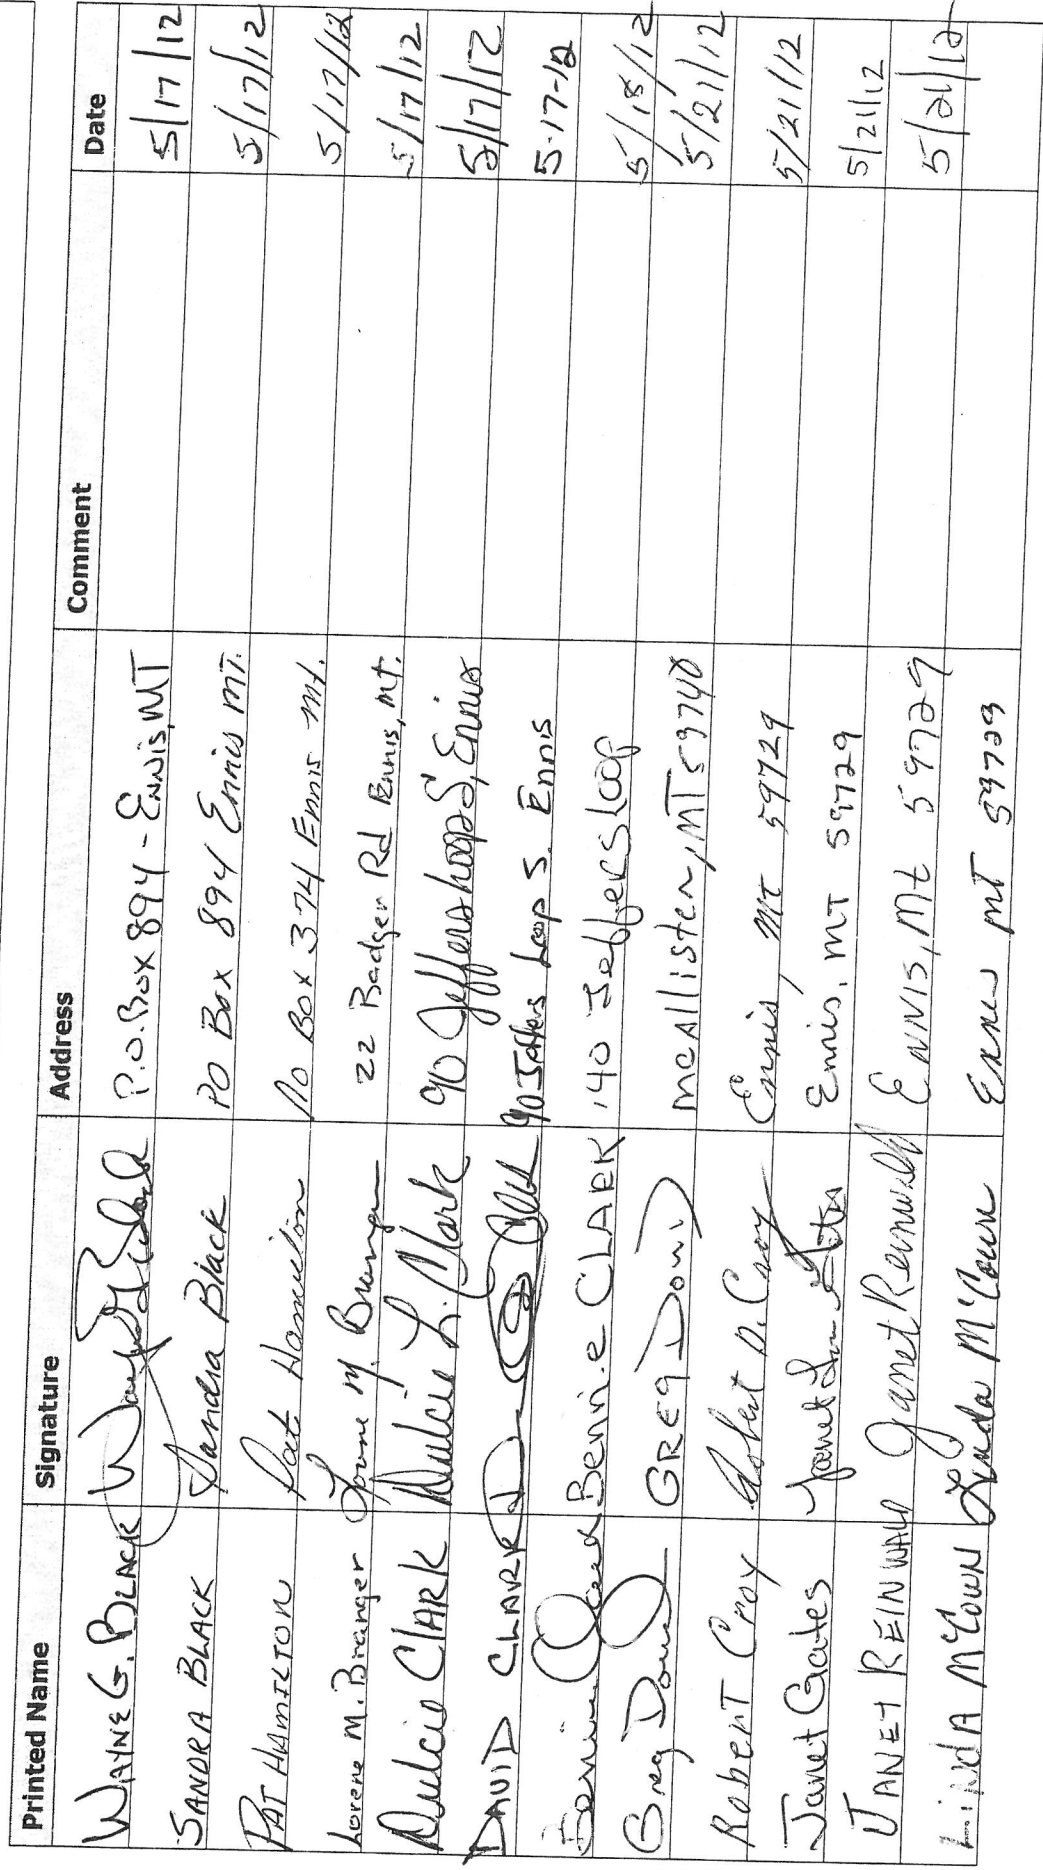 Printed Name Signature Address Comment Date
WAYNE G. BLACK P.O. Box 894 - ENNIS, MT 5/17/12
SANDRA BLACK Sandra Black PO Box 894 Ennis MT. 5/17/12
PAT HAMILTON Pat Hamilton Po Box 374 Ennis Mt. 5/17/12
Lorene M. Branger Lorene M. Branger 22 Badger Rd Ennis, Mt. 5/17/12
Dulcie CLARK Dulcie L. Clark 90 Jeffers Loop S, Ennis 5/17/12
DAVID CLARK 90 Jeffers Loop S. Ennis 5-17-12
Bennie CLARK 140 Jeffers Loop 5/18/12
Greg GREG McAllister, MT 59740 5/21/12
Robert Croy Robert D. Croy Ennis, MT 59729 5/21/12
Janet Gates Janet Ennis, MT 59729 5/21/12
JANET REINWALD Janet Reinwald ENNIS, Mt 59729 5/21/12
LINDA McCOWN Linda McCown Ennis MT 59729 5/21/12